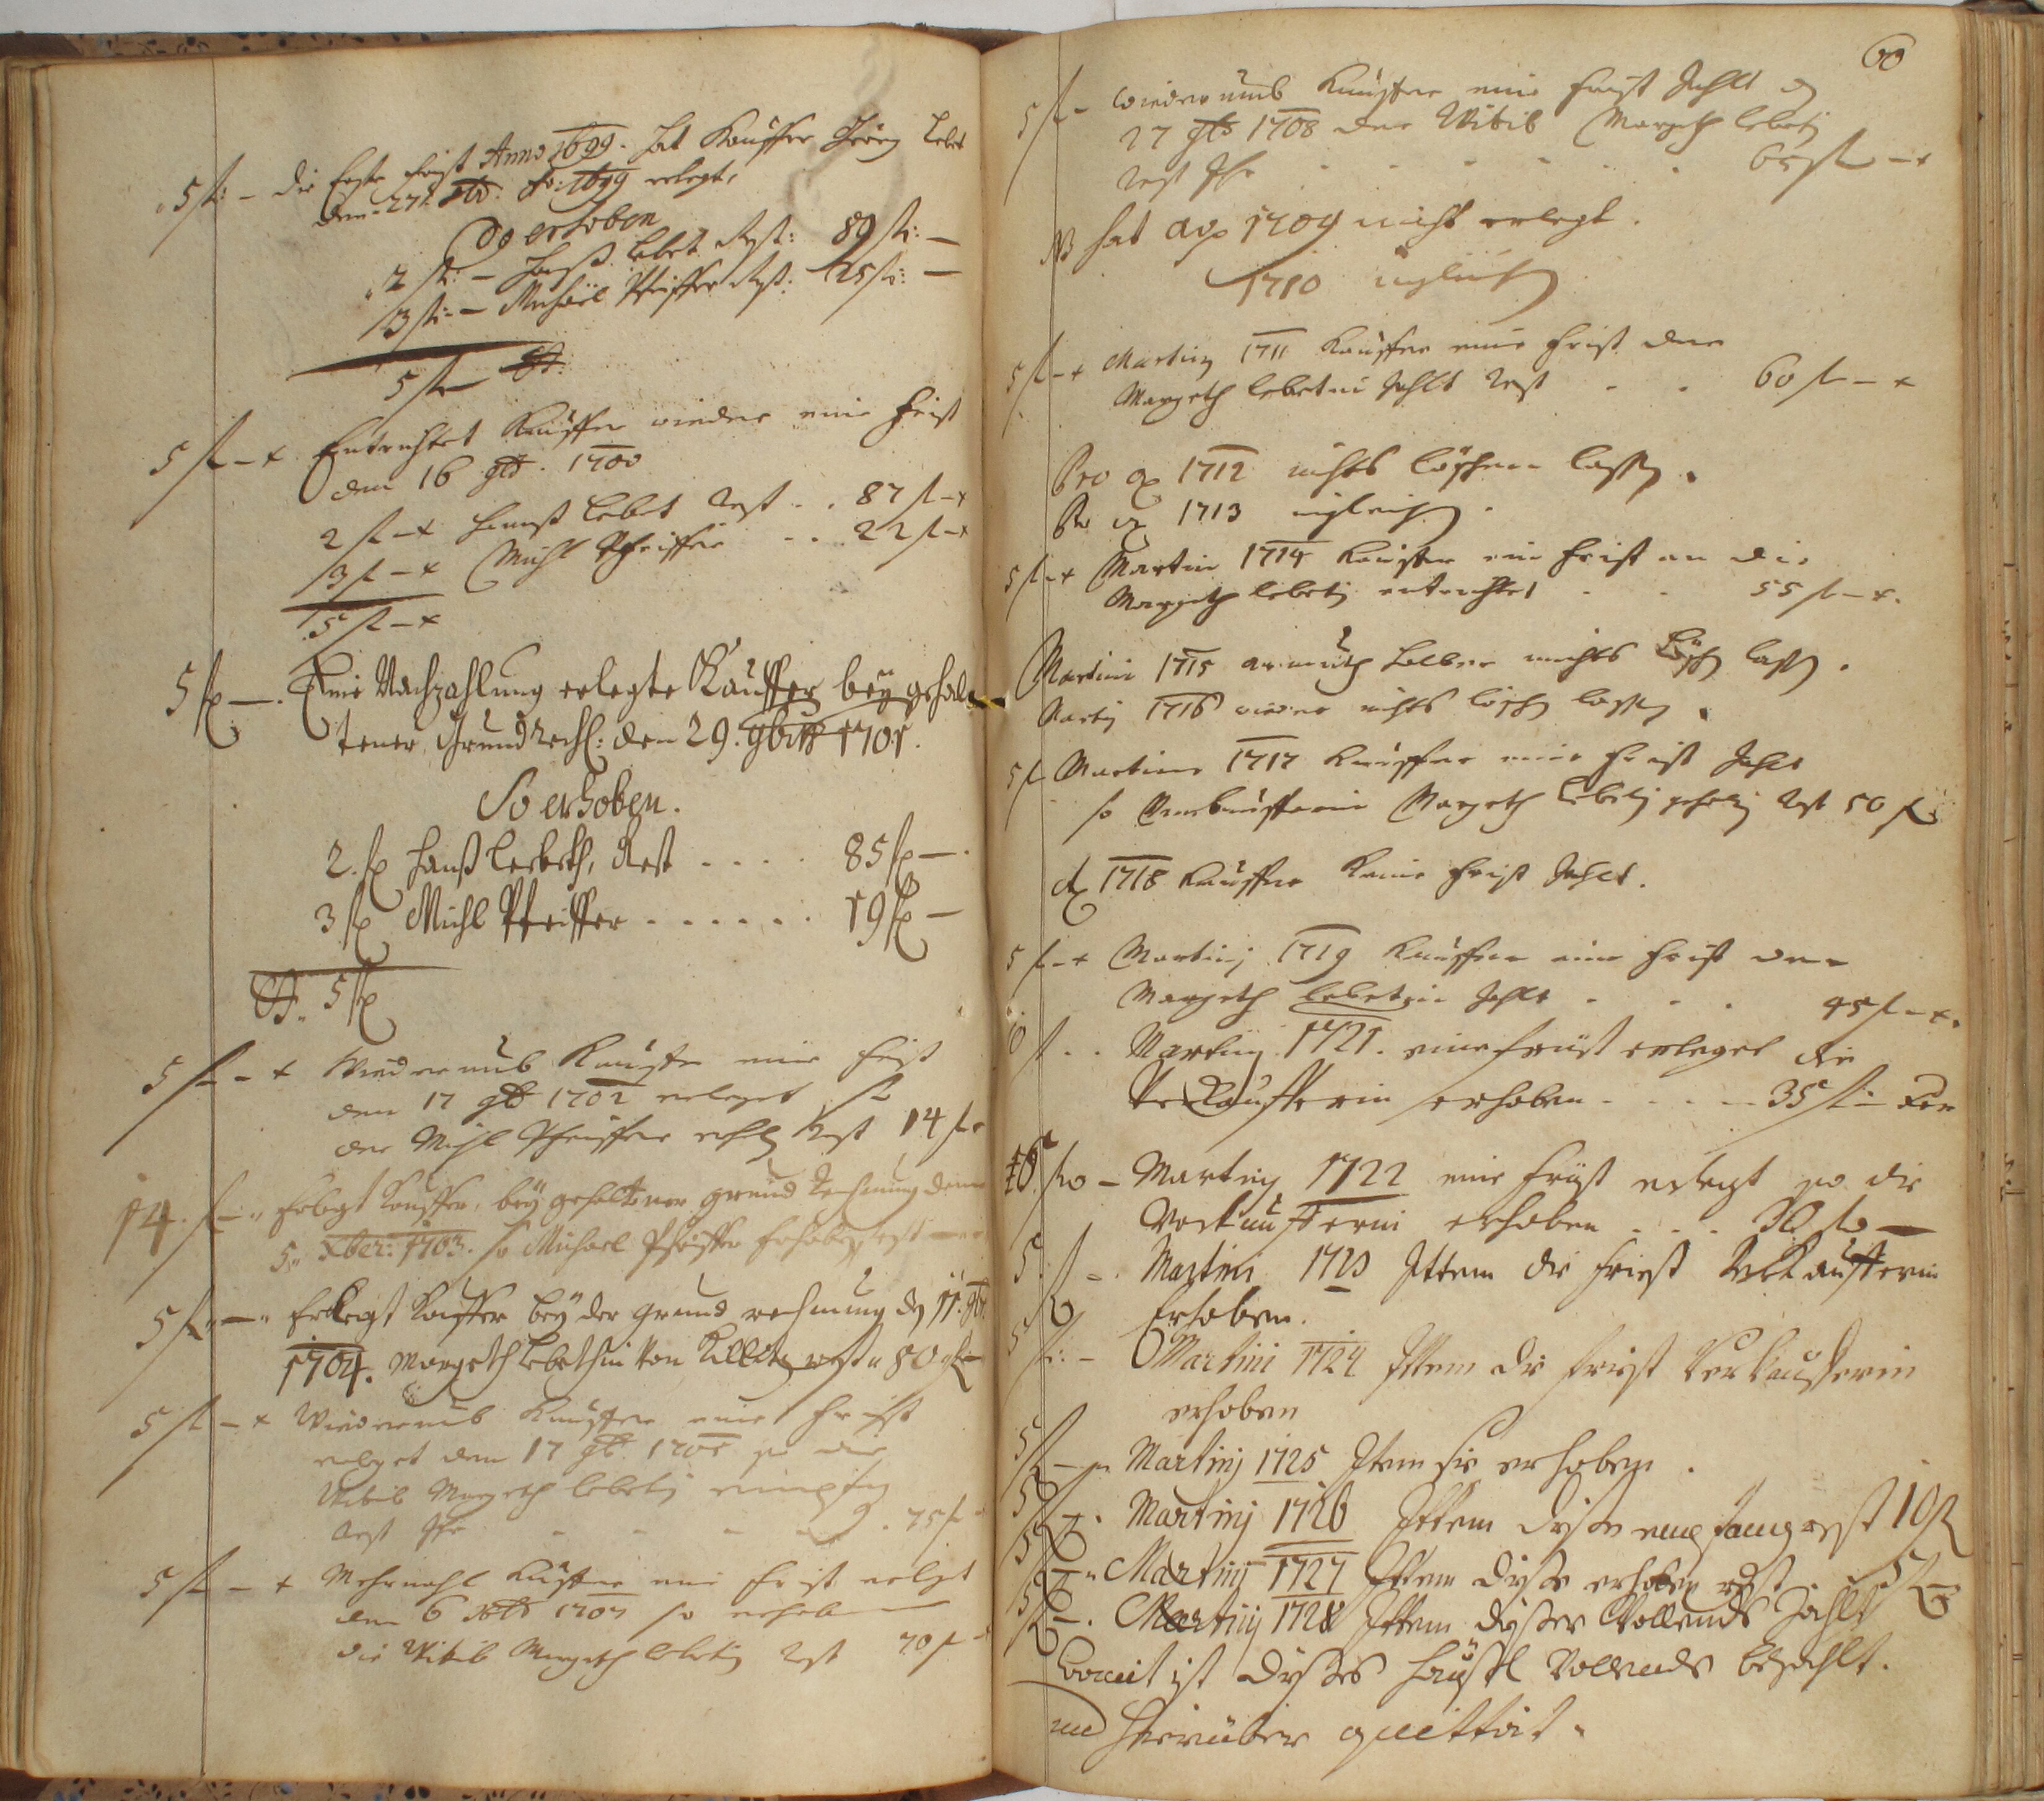 5 fl: – Die Erste frist Anno 1699. hat Kauffer Görg Lebet
den 27t 9br. Ao: 1699 erlegt,
So erhoben
2 fl: – Hanß Lebet Rest: 89 fl: –
3 fl: – Michael Pfeiffer Rest: 25 fl: –
5 fl
5 fl – x Entrichtet Kauffer wieder eine frist
den 16 9br. 1700
2 fl – x Hannß Lebet Rest . . 87 fl – x
3 fl – x Michl Pfeiffer . . 22 fl – x
5 fl – x
5 fl —. Eine Nachzahlung erlegte Kauffer bey gehal
tener Grund rech: den 29. 9bris 1701.
So erhoben.
2. fl Hanß Lebeth, Rest . . . . 85 fl —.
3 fl Michl Pfeiffer . . . . . . 19 fl —
5 fl
5 fl – x Wiederumb Kauffer eine frist
den 17 9br 1702 erleget, so
der Michl Pfeiffer Rest 14 fl
14. fl –" Erlegt Kauffer, bey gehaltener grund Rechnung denn
5" Xber: 1703. so Michael Pfeiffer Erhoben, rest —
5 fl" —" Erlegt Kauffer bey der grund rechnung den 11. 9br.
1704. Margeth Lebethin von rest" 80 fl –
5 fl – x Wiederumb Kauffer eine frist
erleget den 17 9br. 1705 so die
Wittib Margeth Lebetin empfing
Rest Ihr - - - - 75 fl
5 fl – x Mehrmahl Kauffer eine frist erlegt
den 6 1707 so erheb
die Wittib Margeth Lebetin Rest 70 fl –
5 fl – wiederumb Kauffer eine frist Zahlt
27 9br 1708 der Wittib Margeth Lebetin
Rest Ihr - - - - - 65 fl – x
NB hat Ao 1709 nicht erlegt.
1710 ingleich
5 fl – x Martiny 1711 Kauffer eine frist der
Margeth Lebetin Zahlt Rest - - 60 fl – x
Pro Ao 1712 nichts löschen lassen.
Pro Ao 1713 ingleich.
5 fl – x Martini 1714 Kauffer eine frist an die
Margeth Lebetin entrichtet - - 55 fl – x.
Martini 1715 armuth halber nichts lösch lassen.
Martiny 1716 wieder nichts lösch lassen.
5 fl Martini 1717 Kauffer eine frist Zahlt
so Verkäufferin Margeth Lebetin Rest 50 fl
Ao 1718 Kauffer Keine frist Zahlt.
5 fl – x Martinj 1719 Kauffer eine frist der
Margeth Lebetin Zahlt - - - 45 fl – x.
fl . . Martiny 1721. eine frist erleget die
Verkaufferin erhoben - - - - 35 fl –
fl – Martiny 1722 eine frist erlegt so die
Verkaufferin erhoben - - - 30 fl —
5 fl –. Martini 1723 Ittem die frist Verkaufferin
Erhoben.
5 fl: – Martini 1724 Ittem die frist Verkaufferin
erhoben
5 fl – Martinj 1725 Item sie erhoben.
5 fl –. Martinj 1726 Ittem dieße empfang rest 10 fl
5 fl –" Martinij 1727 Ittem dieße erhoben rest 5 fl –
5 fl –. Martinij 1728 Ittem dießer Vollends Zahlt
Somit ist dießes Häußl Vollends bezahlt.
und hierüber quittirt.